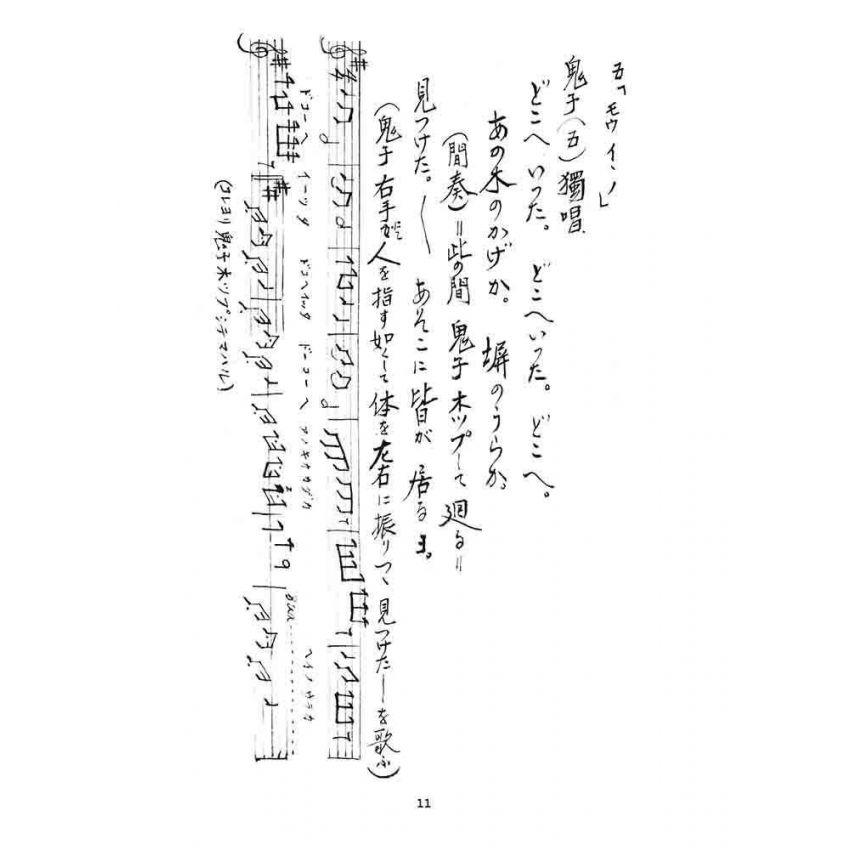 五、「モウイヽノ」
鬼子（五）獨唱
どこへいつた。どこへいつた。どこへ。
あの木のかげか。塀のうらか。
（間奏）＝此の間 鬼子 ホツプして 廻る＝
見つけた。〳〵 あそこに皆が 居るよ。
（鬼子 右手 人を指す如くして体を左右に振りつゝ見つけた―を歌ふ）
ドコーヘ イーツタ ドコヘイツタ ドーコーヘ アノキノカゲカ ヘイノウラカ
8va
（コレヨリ鬼子ホツプシテマハル）
11